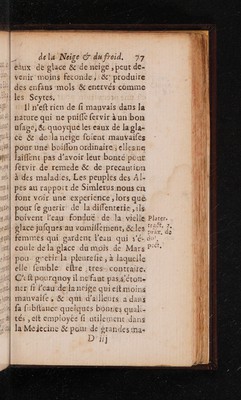 de la Neige & du froid. 77
eaux de glace & de neige, peut de-
venir moins feconde, & produire
des enfans mols & enervés comme
les Scytes.
Il n'est rien de si mauvais dans la
nature qui ne puisse servir à un bon
usage, & quoyque les eaux de la gla-
ce & de la neige soient mauvaises
pour une boisson ordinaire, elle ne
laissent pas d'avoir leur bonté pour
servir de remede & de precaution
à des maladies. Les peuples des Al-
pes au rapport de Simlerus nous en
font voir une experience, lors que
pour se guerir de la dissenterie, ils
boivent l'eau fondue de la vieille
glace jusques au vomissement, & les
femmes qui gardent l'eau qui s'é-
coule de la glace du mois de Mars
pou guerir la pleuresie, à laquelle
elle semble estre tres contraire.
C'est pourquoy il ne faut pas s'éton-
ner si l'eau de la neige qui est moins
mauvaise, & qui d'ailleurs a dans
sa substance quelques bonnes quali-
tés, est employée si utilement dans
la Medecine & pour de grandes ma-
D iij
Plater.